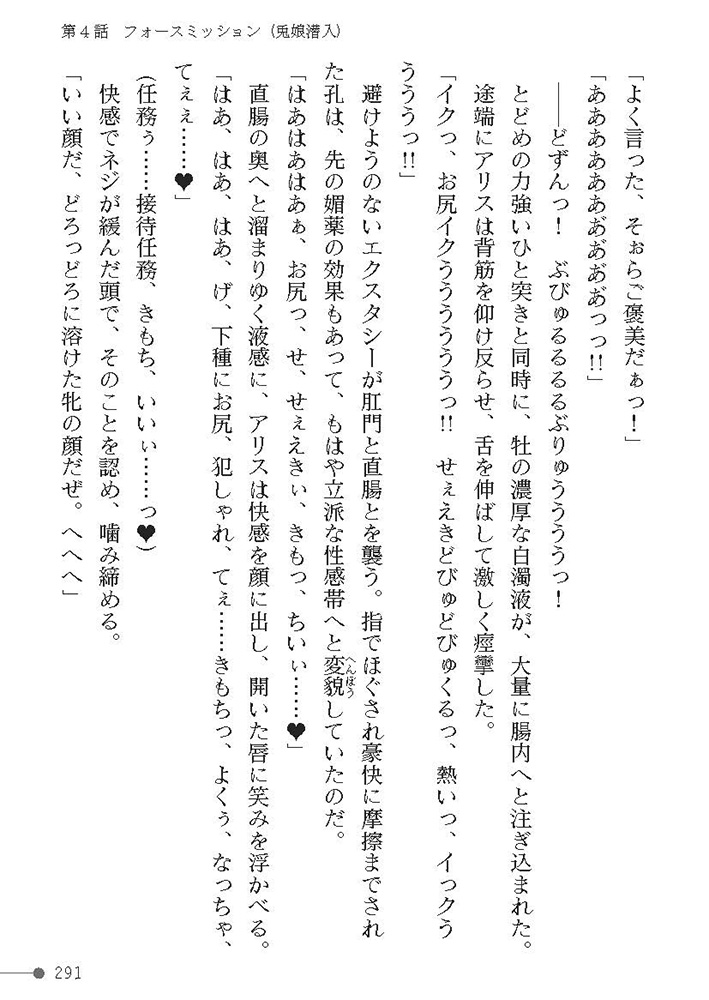 第4話 フォースミッション(兎娘潜入)
「よく言った、そぉらご褒美だぁっ!」
「ああああああぢぢぢぢっっ!!」
――どずんっ! ぶびゅるるるるぶりゅうううっ!
とどめの力強いひと突きと同時に、牡の濃厚な白濁液が、大量に腸内へと注ぎ込まれた。
途端にアリスは背筋を仰け反らせ、舌を伸ばして激しく痙攣した。
「イクっ、お尻イクうううううっ!! せぇえきどびゅどびゅくるっ、熱いっ、イっクう
うううっ!!」
避けようのないエクスタシーが肛門と直腸とを襲う。指でほぐされ豪快に摩擦までされ
た孔は、先の媚薬の効果もあって、もはや立派な性感帯へと変貌していたのだ。
「はあはあはあぁ、お尻っ、せ、せぇえきぃ、きもっ、ちいぃ……♥」
直腸の奥へと溜まりゆく液感に、アリスは快感を顔に出し、開いた唇に笑みを浮かべる。
「はあ、はあ、はあ、げ、下種にお尻、犯しゃれ、てぇ……きもちっ、よくぅ、なっちゃ、
てぇぇ……♥」
(任務ぅ……接待任務、きもち、いいぃ……っ♥)
快感でネジが緩んだ頭で、そのことを認め、噛み締める。
「いい顔だ、どろっどろに溶けた牝の顔だぜ。へへへ」
へんぼう
291